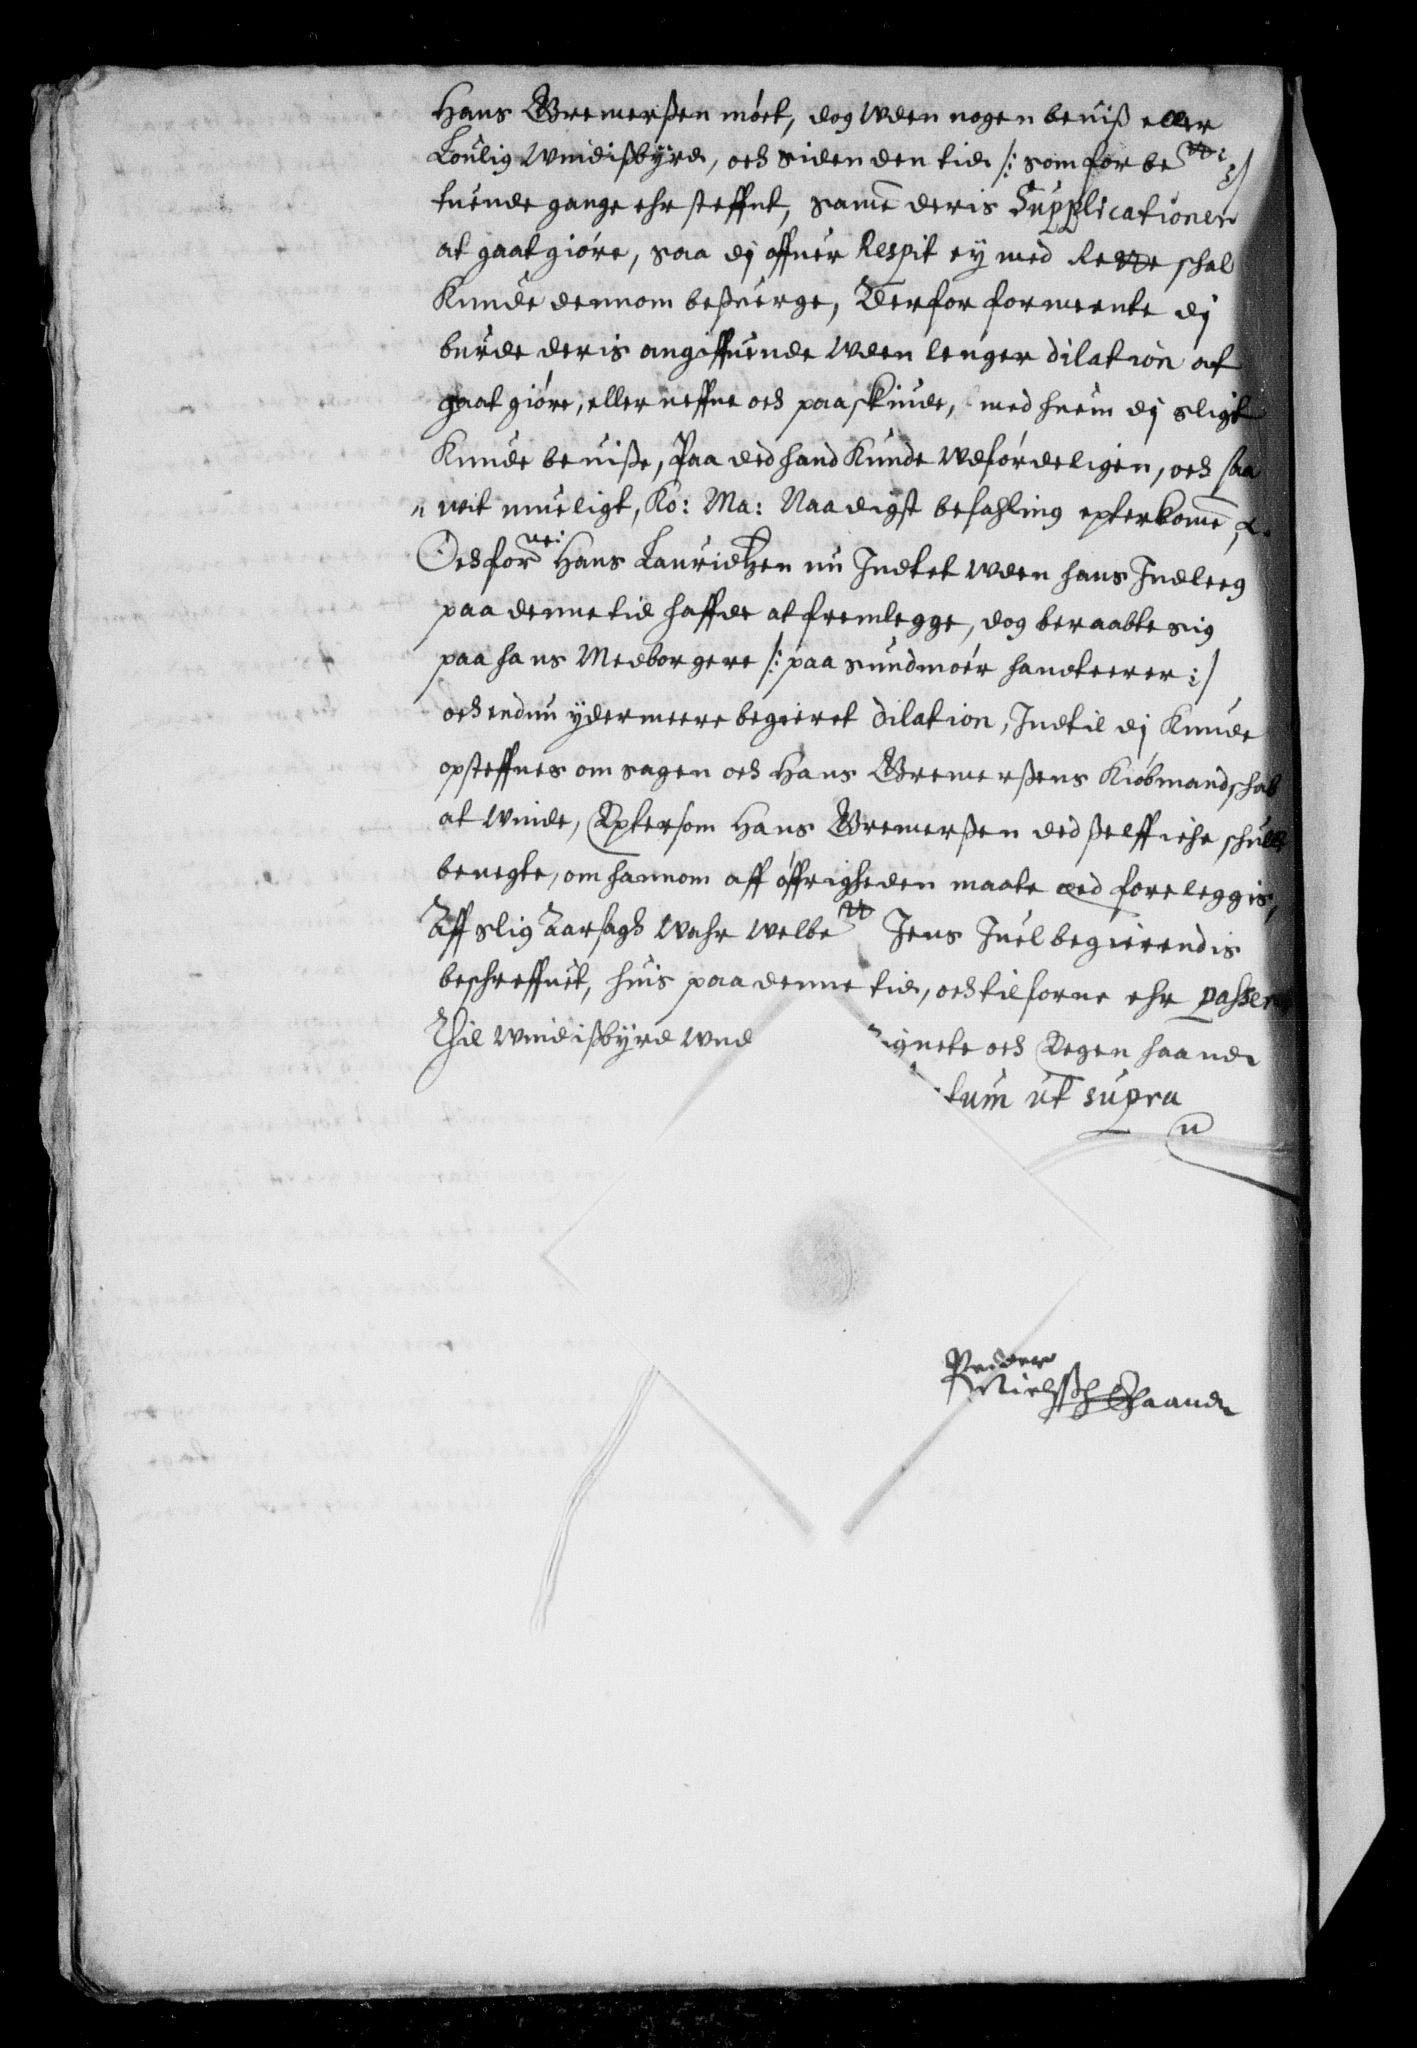 Hans Bremerßen mört, dog Wden nogen beuiß eller
Loulig Windißbÿrd, och siden den tid /: som for be:te :/
tuende gange ehr steffnt, same deris Supplicationer
at gaat giöre, saa dj offuer Respit eÿ med Rette schal
Kunde dennom beßuerge, Derfor formeente dj
burde deris angiffuende Wden lenger dilation at
gaat giöre, eller neffne och paaskiude, med huem dj sligt
Kunde beuiße, Paa ded hand Kunde Wdfördeligen, och saa
uit mueligt, Ko: Ma: Naadigst befahling epterkome, &.
Och forne: Hans Lauridtzen nu Indtet Wden hans Indleeg
paa denne tid haffde at fremlegge, dog beraabte sig
paa hans Medborgere /: paa sundmoér handteerer :/
och endnu ÿdermeere begieret dilation, Indtil dj Kunde
opsteffnes om sagen och Hans Bremerßens Kiöbmandschab
at Winde, Epter som Hans Bremerßen ded ßelff iche schulle
benegte, om hannom aff öffrigheden maate æd foreleggis,
Aff slig Aarsagh Wahr Welbe:te Jens Juel begierendis
beschreffuet, huis paa denne tid, och tilforne ehr passer
Thil Windißbÿrd Wnd ignete och Egen haand
tum ut supra
Peder
Nielssøn Ehaand